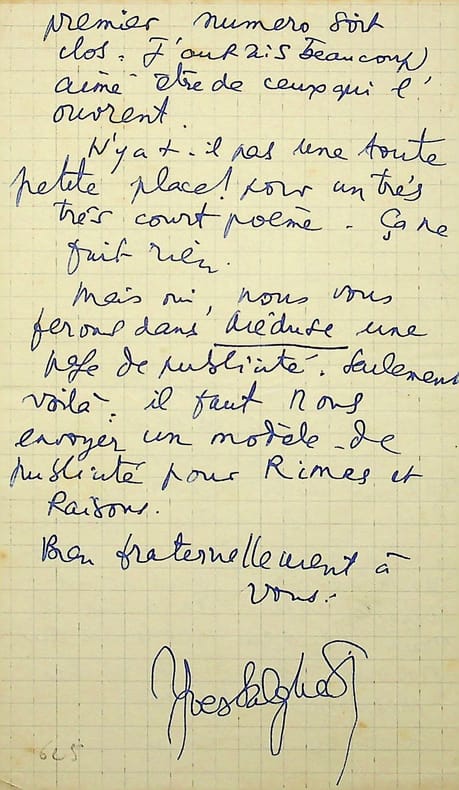 premier numero soit
clos. J'aurais beaucoup
aimé être de ceux qui l'
ouvrent.
N'y a t-il pas une toute
petite place! pour un très
très court poème - Ça ne
fait rien.
Mais oui, nous vous
ferons dans Méduse une
page de publicité. Seulement
voilà: il faut nous
envoyer un modèle de
publicité pour Rimes et
Raisons.
Bien fraternellement à
vous.
Yves Salgues
625